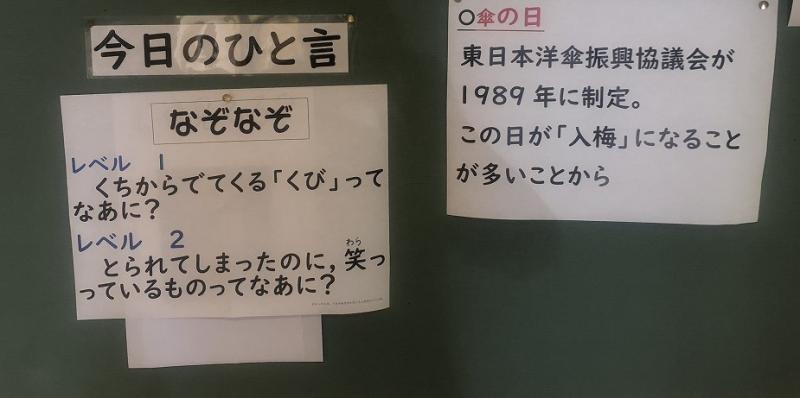 今日のひと言
なぞなぞ
レベル　1
くちからでてくる「くび」って
なあに？
レベル　2
とられてしまったのに，笑っ
わら
っているものってなあに？
○傘の日
東日本洋傘振興協議会が
1989 年に制定。
この日が「入梅」になること
が多いことから